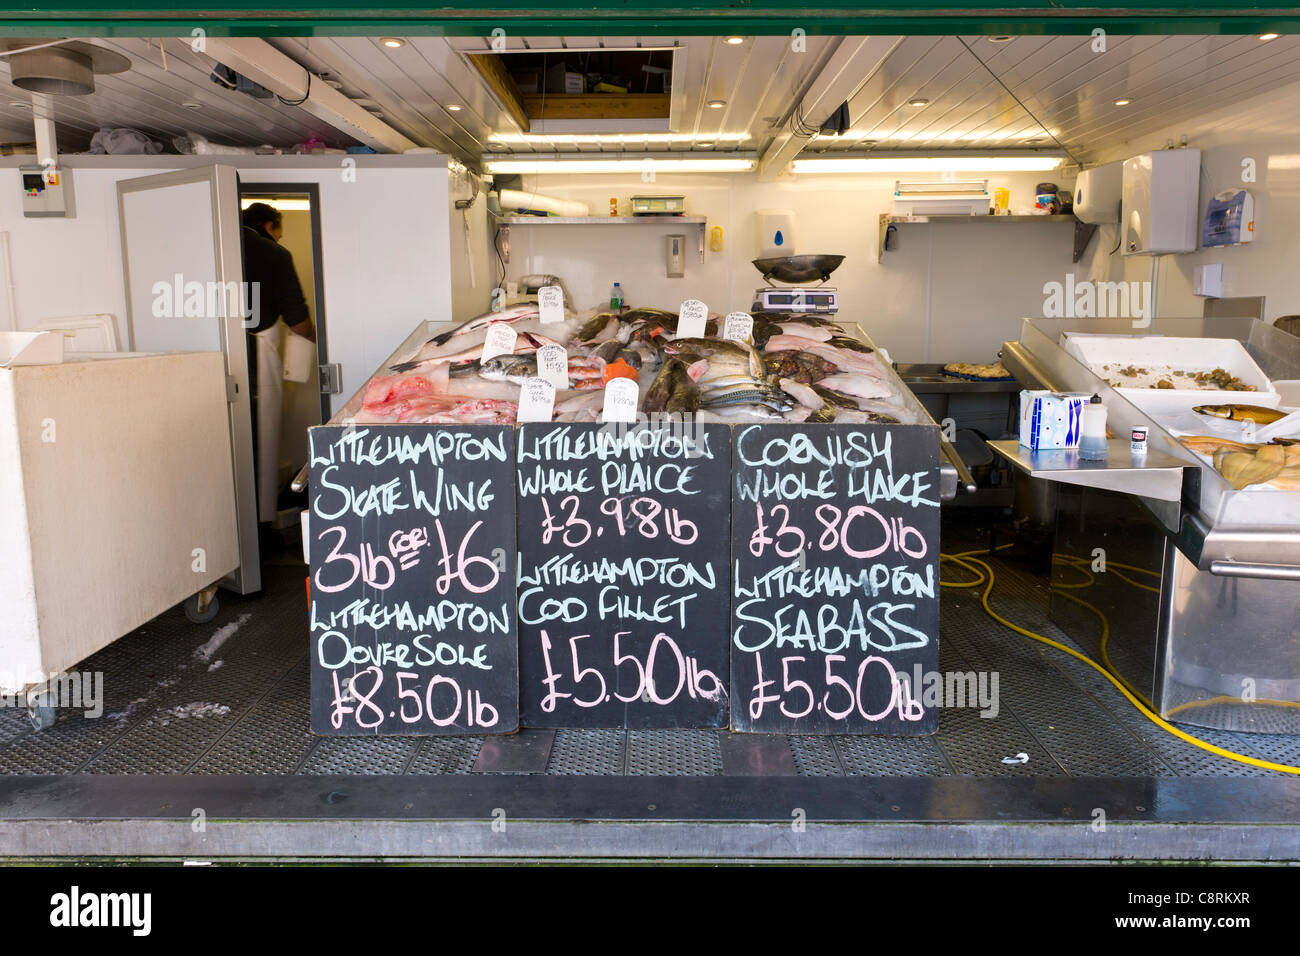 LITTLEHAMPTON
SKATE WING
3lb FOR! £6
LITTLEHAMPTON
DOVER SOLE
£8.50lb
LITTLEHAMPTON
WHOLE PLAICE
£3.98lb
LITTLEHAMPTON
COD FILLET
£5.50lb
CORNISH
WHOLE HAKE
£3.80lb
LITTLEHAMPTON
SEABASS
£5.50lb
alamy
Image ID: C8RKXR
www.alamy.com